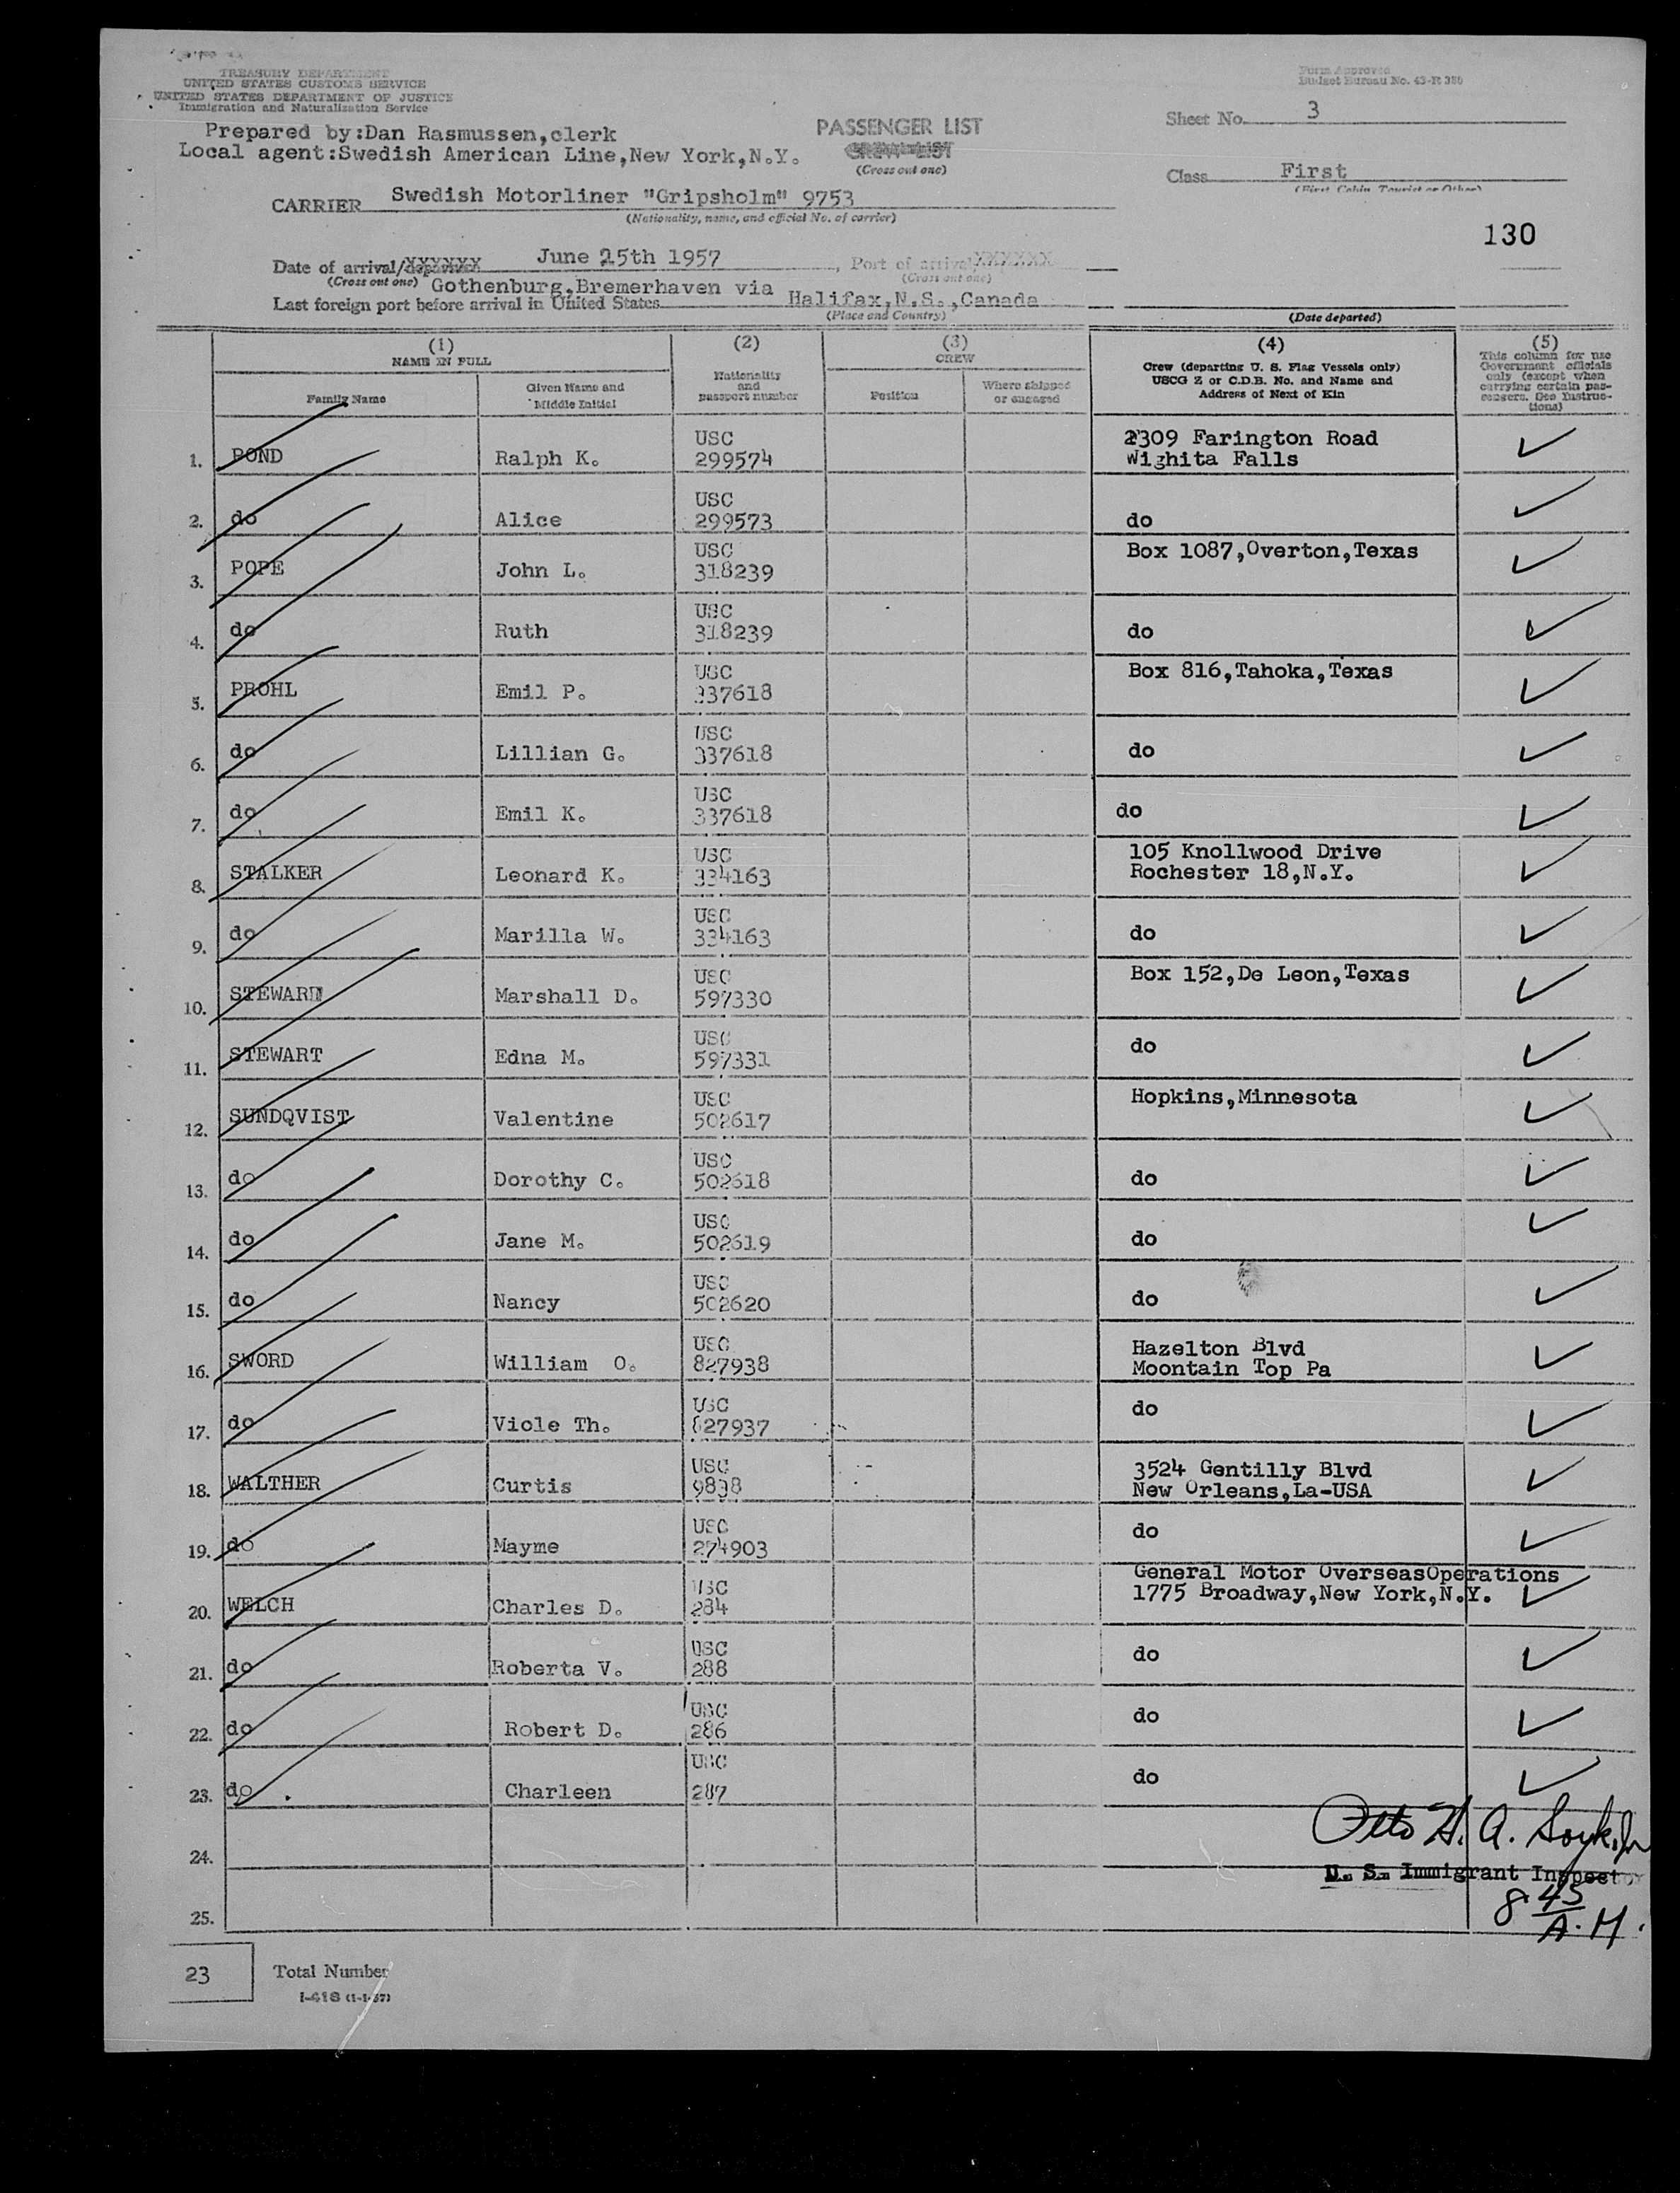 TREASURY DEPARTMENT
UNITED STATES CUSTOMS SERVICE
UNITED STATES DEPARTMENT OF JUSTICE
Immigration and Naturalization Service
Form Approved
Budget Bureau No. 43-R 380
Prepared by:Dan Rasmussen,clerk
Local agent:Swedish American Line,New York,N.Y.
PASSENGER LIST
CREW LIST
(Cross out one)
Sheet No. 3
Class First
(First, Cabin, Tourist or Other)
CARRIER Swedish Motorliner "Gripsholm" 9753
(Nationality, name, and official No. of carrier)
130
Date of arrival/departure June 25th 1957, Port of arrival/XXXXXX
(Cross out one) (Cross out one)
Gothenburg,Bremerhaven via
Last foreign port before arrival in United States Halifax,N.S.,Canada
(Place and Country) (Date departed)
(1) (2) (3) (4) (5)
NAME IN FULL
Family Name
Given Name and Middle Initial
Nationality and passport number
CREW
Position
Where shipped or engaged
Crew (departing U. S. Flag Vessels only)
USCG Z or C.D.B. No. and Name and
Address of Next of Kin
This column for use
Government officials
only (except when
carrying certain pas-
sengers. See Instruc-
tions)
1. POND Ralph K. USC 299574 2309 Farington Road Wighita Falls
2. do Alice USC 299573 do
3. POPE John L. USC 318239 Box 1087,Overton,Texas
4. do Ruth USC 318239 do
5. PROHL Emil P. USC 337618 Box 816,Tahoka,Texas
6. do Lillian G. USC 337618 do
7. do Emil K. USC 337618 do
8. STALKER Leonard K. USC 334163 105 Knollwood Drive Rochester 18,N.Y.
9. do Marilla W. USC 334163 do
10. STEWART Marshall D. USC 597330 Box 152,De Leon,Texas
11. STEWART Edna M. USC 597331 do
12. SUNDQVIST Valentine USC 502617 Hopkins,Minnesota
13. do Dorothy C. USC 502618 do
14. do Jane M. USC 502619 do
15. do Nancy USC 502620 do
16. SWORD William O. USC 827938 Hazelton Blvd Moontain Top Pa
17. do Viole Th. USC 827937 do
18. WALTHER Curtis USC 9898 3524 Gentilly Blvd New Orleans,La-USA
19. do Mayme USC 274903 do
20. WELCH Charles D. USC 284 General Motor OverseasOperations 1775 Broadway,New York,N.Y.
21. do Roberta V. USC 288 do
22. do Robert D. USC 286 do
23. do Charleen USC 287 do
24.
25.
Otto H. A.
U. S. Immigrant Inspector
8 45 A.M.
23 Total Number
I-418 (1-1-57)